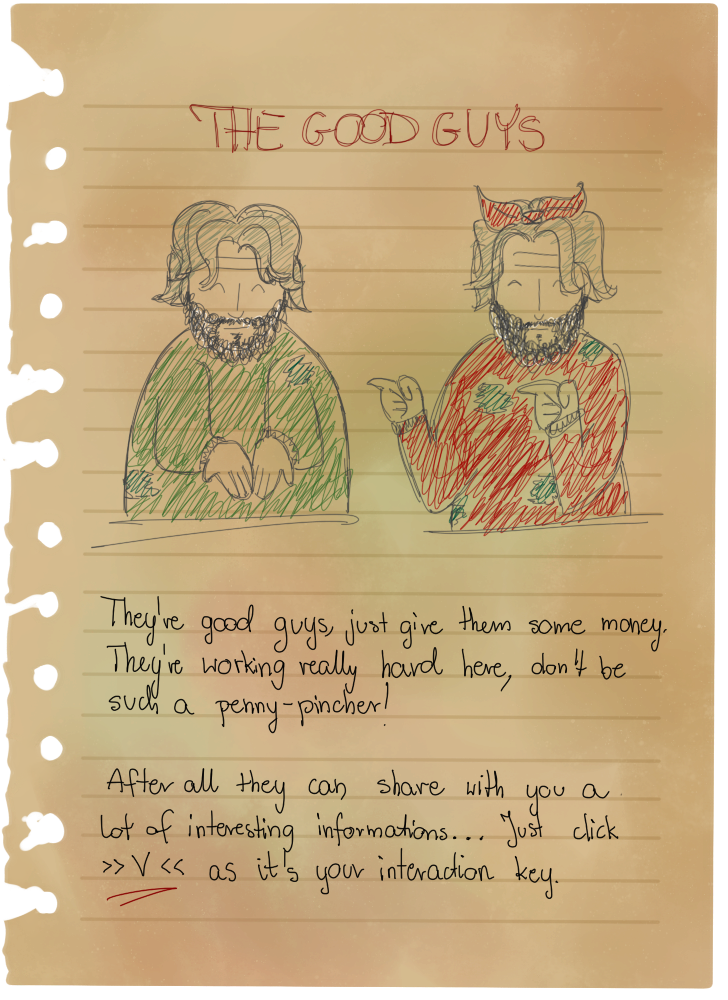 THE GOOD GUYS
They're good guys, just give them some money.
They're working really hard here, don't be
such a penny-pincher!
After all they can share with you a
lot of interesting informations... Just click
>> V << as it's your interaction key.